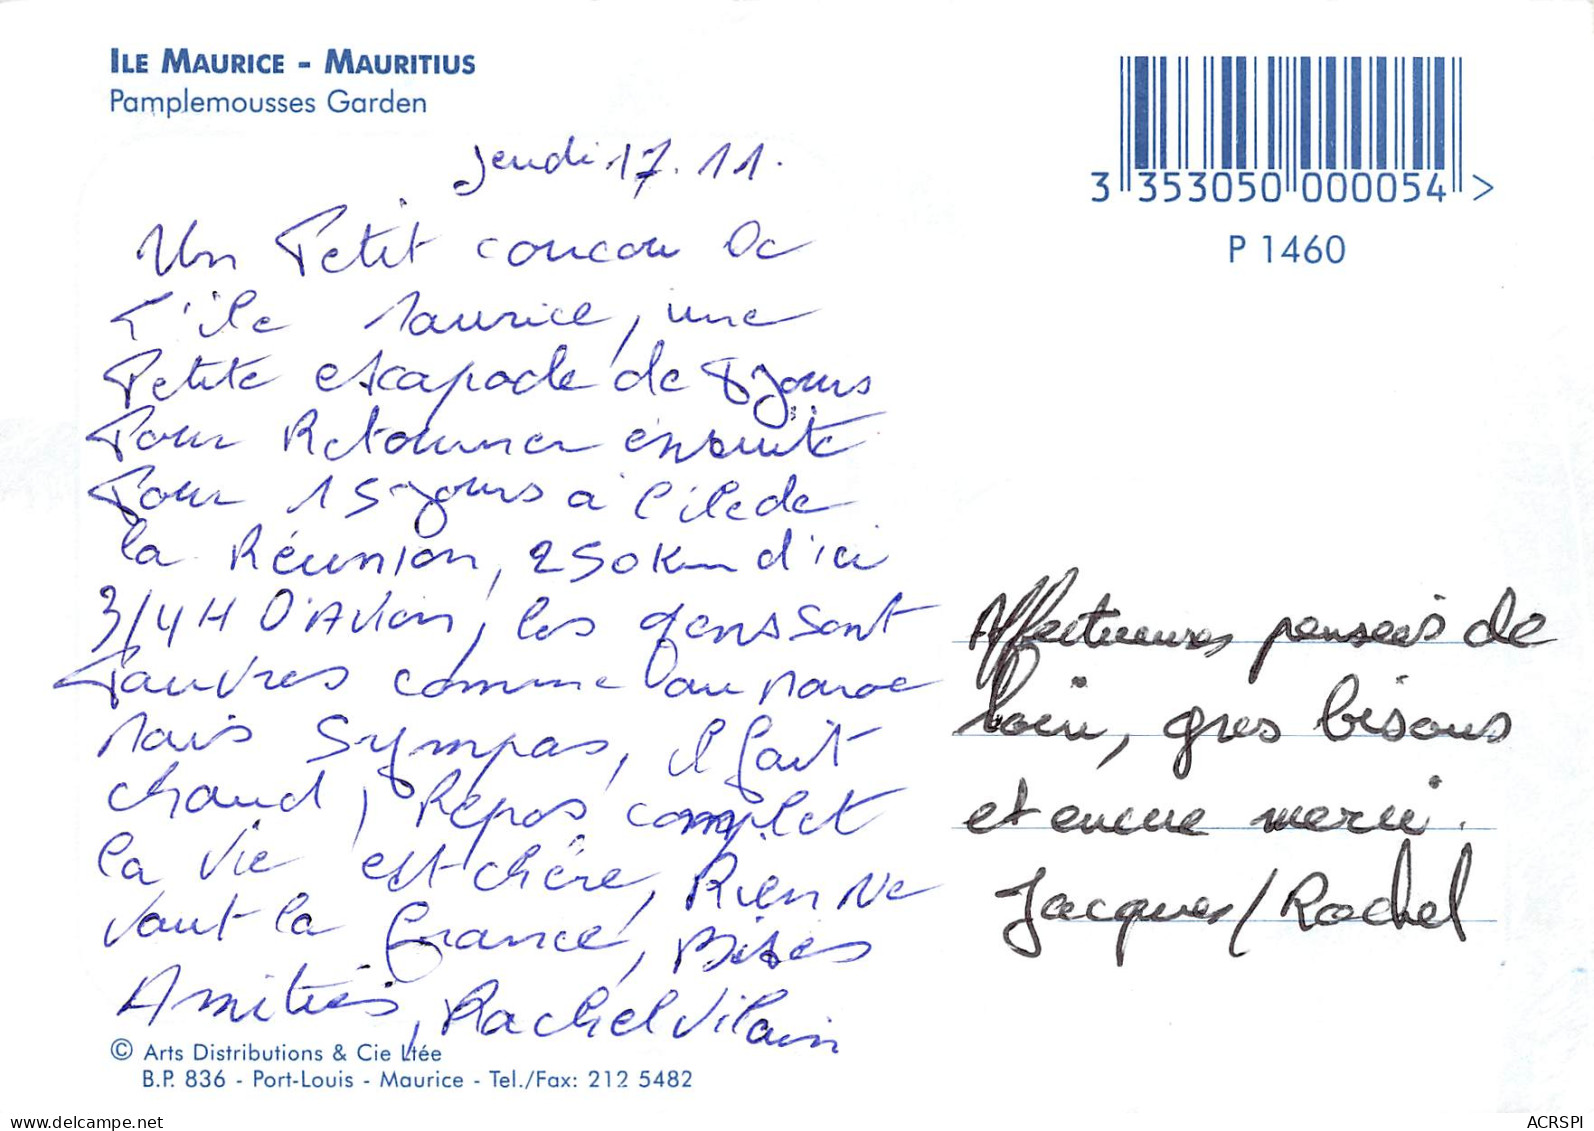 ILE MAURICE - MAURITIUS
Pamplemousses Garden
3 353050 000054 >
P 1460
Jeudi 17.11.
Un Petit coucou De
L'île Maurice, une
Petite escapade de 8 jours
Pour Retourner ensuite
Pour 15 jours à l'île de
la Réunion, 250 Km d'ici
3/4 H D'Avion, les gens sont
Pauvres comme au Maroc
Mais Sympas, il fait
chaud, Repos complet
la vie est chère, Rien Ne
vaut la France, Bises
Amitiés, Rachel Vilain
Affectueuses pensées de
loin, gros bisous
et encore merci.
Jacques / Rachel
© Arts Distributions & Cie Ltée
B.P. 836 - Port-Louis - Maurice - Tel./Fax: 212 5482
ACRSPI